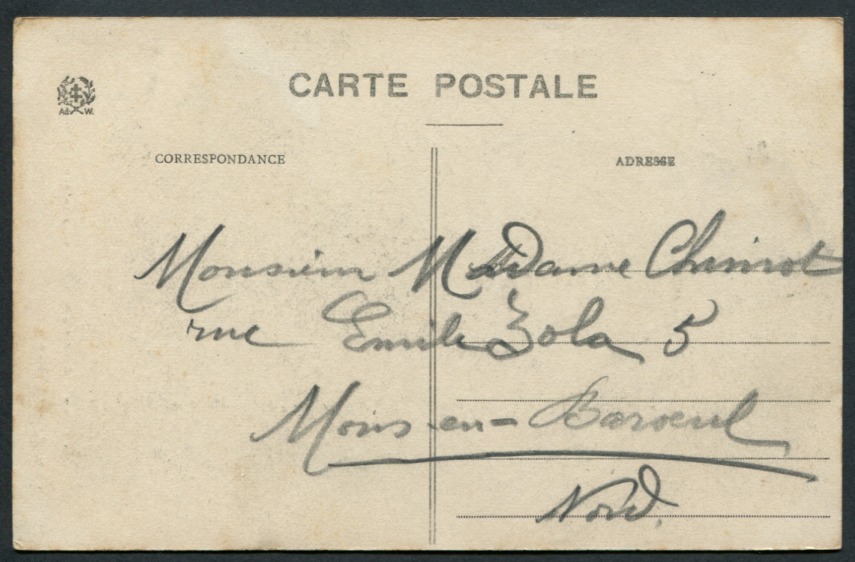 CARTE POSTALE
Ad. W.
CORRESPONDANCE
ADRESSE
Monsieur Madame Chimot
rue Emile Zola 5
Mons-en-Baroeul
Nord.